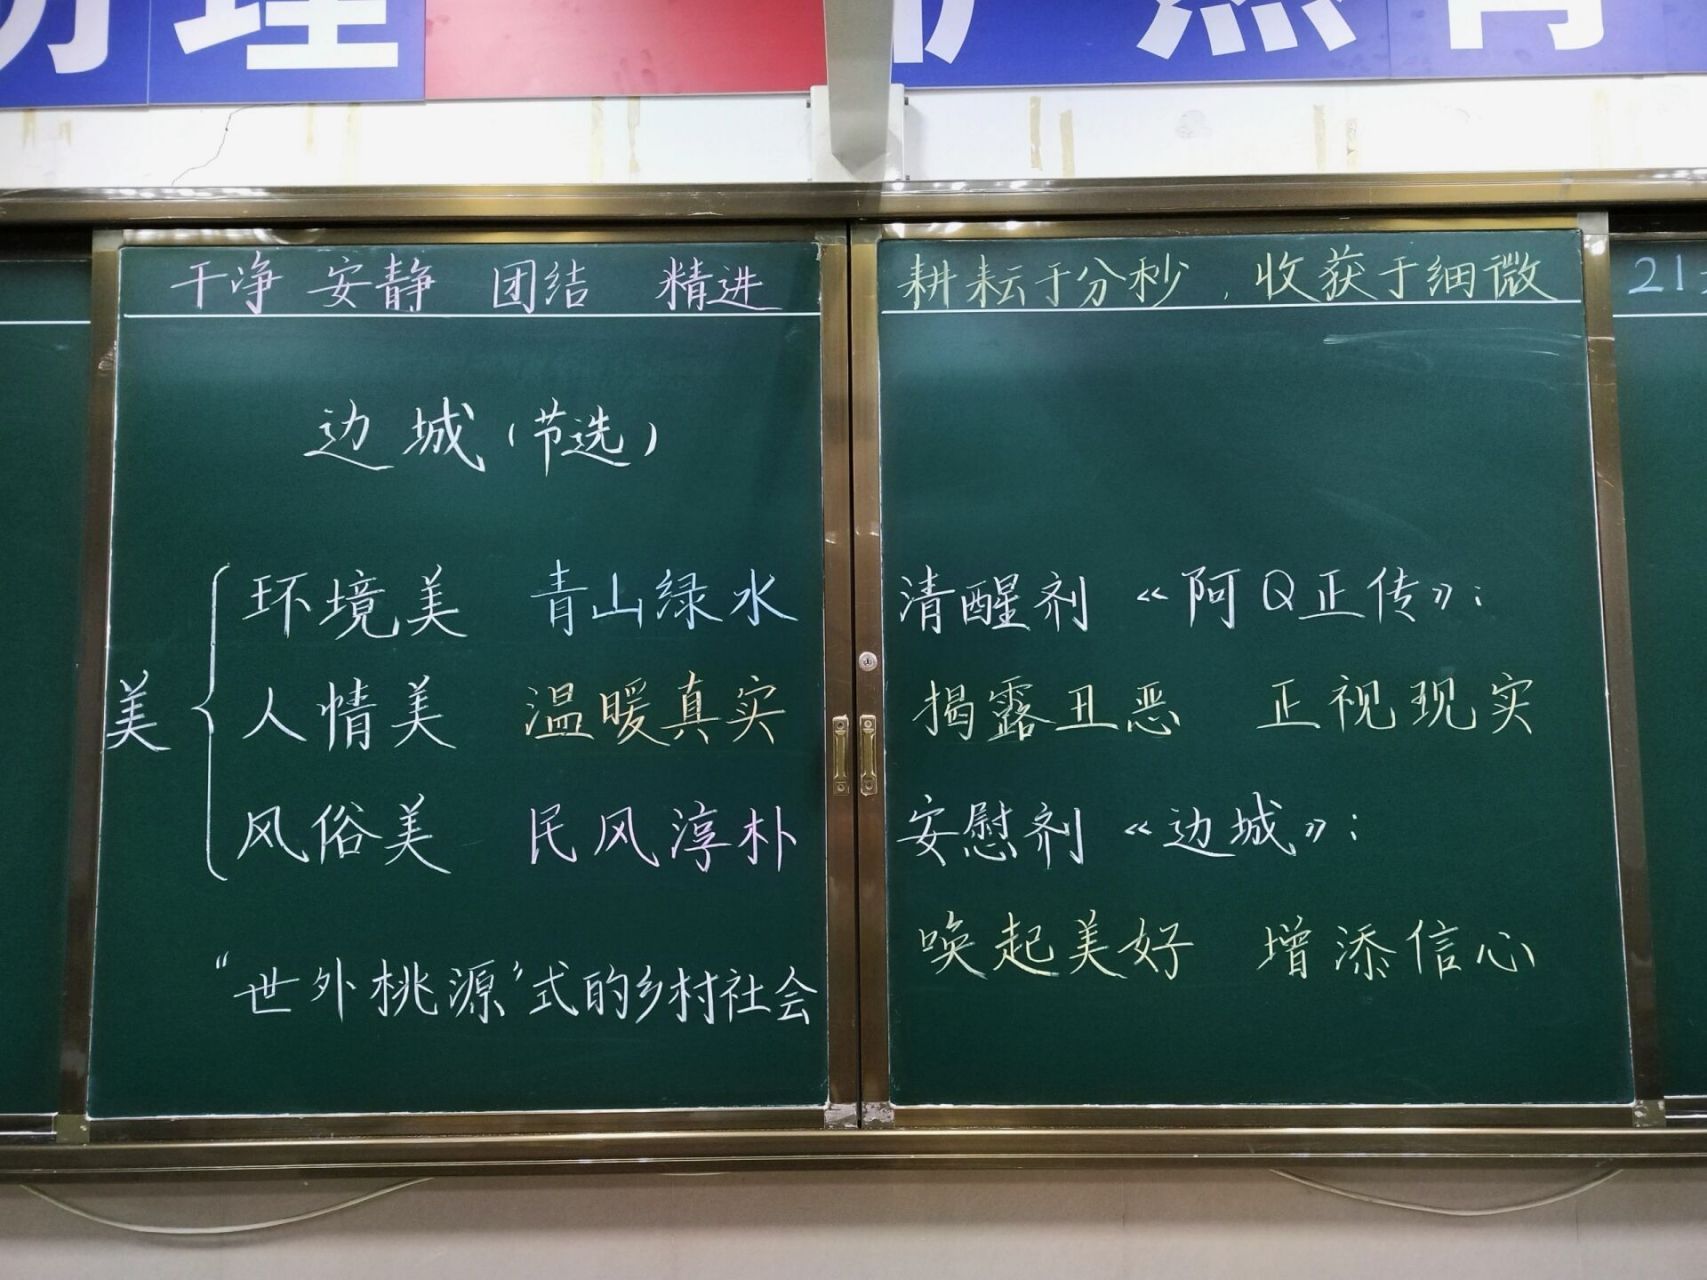 理
干净 安静 团结 精进
耕耘于分秒，收获于细微
边城（节选）
美
环境美 青山绿水
人情美 温暖真实
风俗美 民风淳朴
“世外桃源”式的乡村社会
清醒剂《阿Q正传》：
揭露丑恶 正视现实
安慰剂《边城》：
唤起美好 增添信心
21